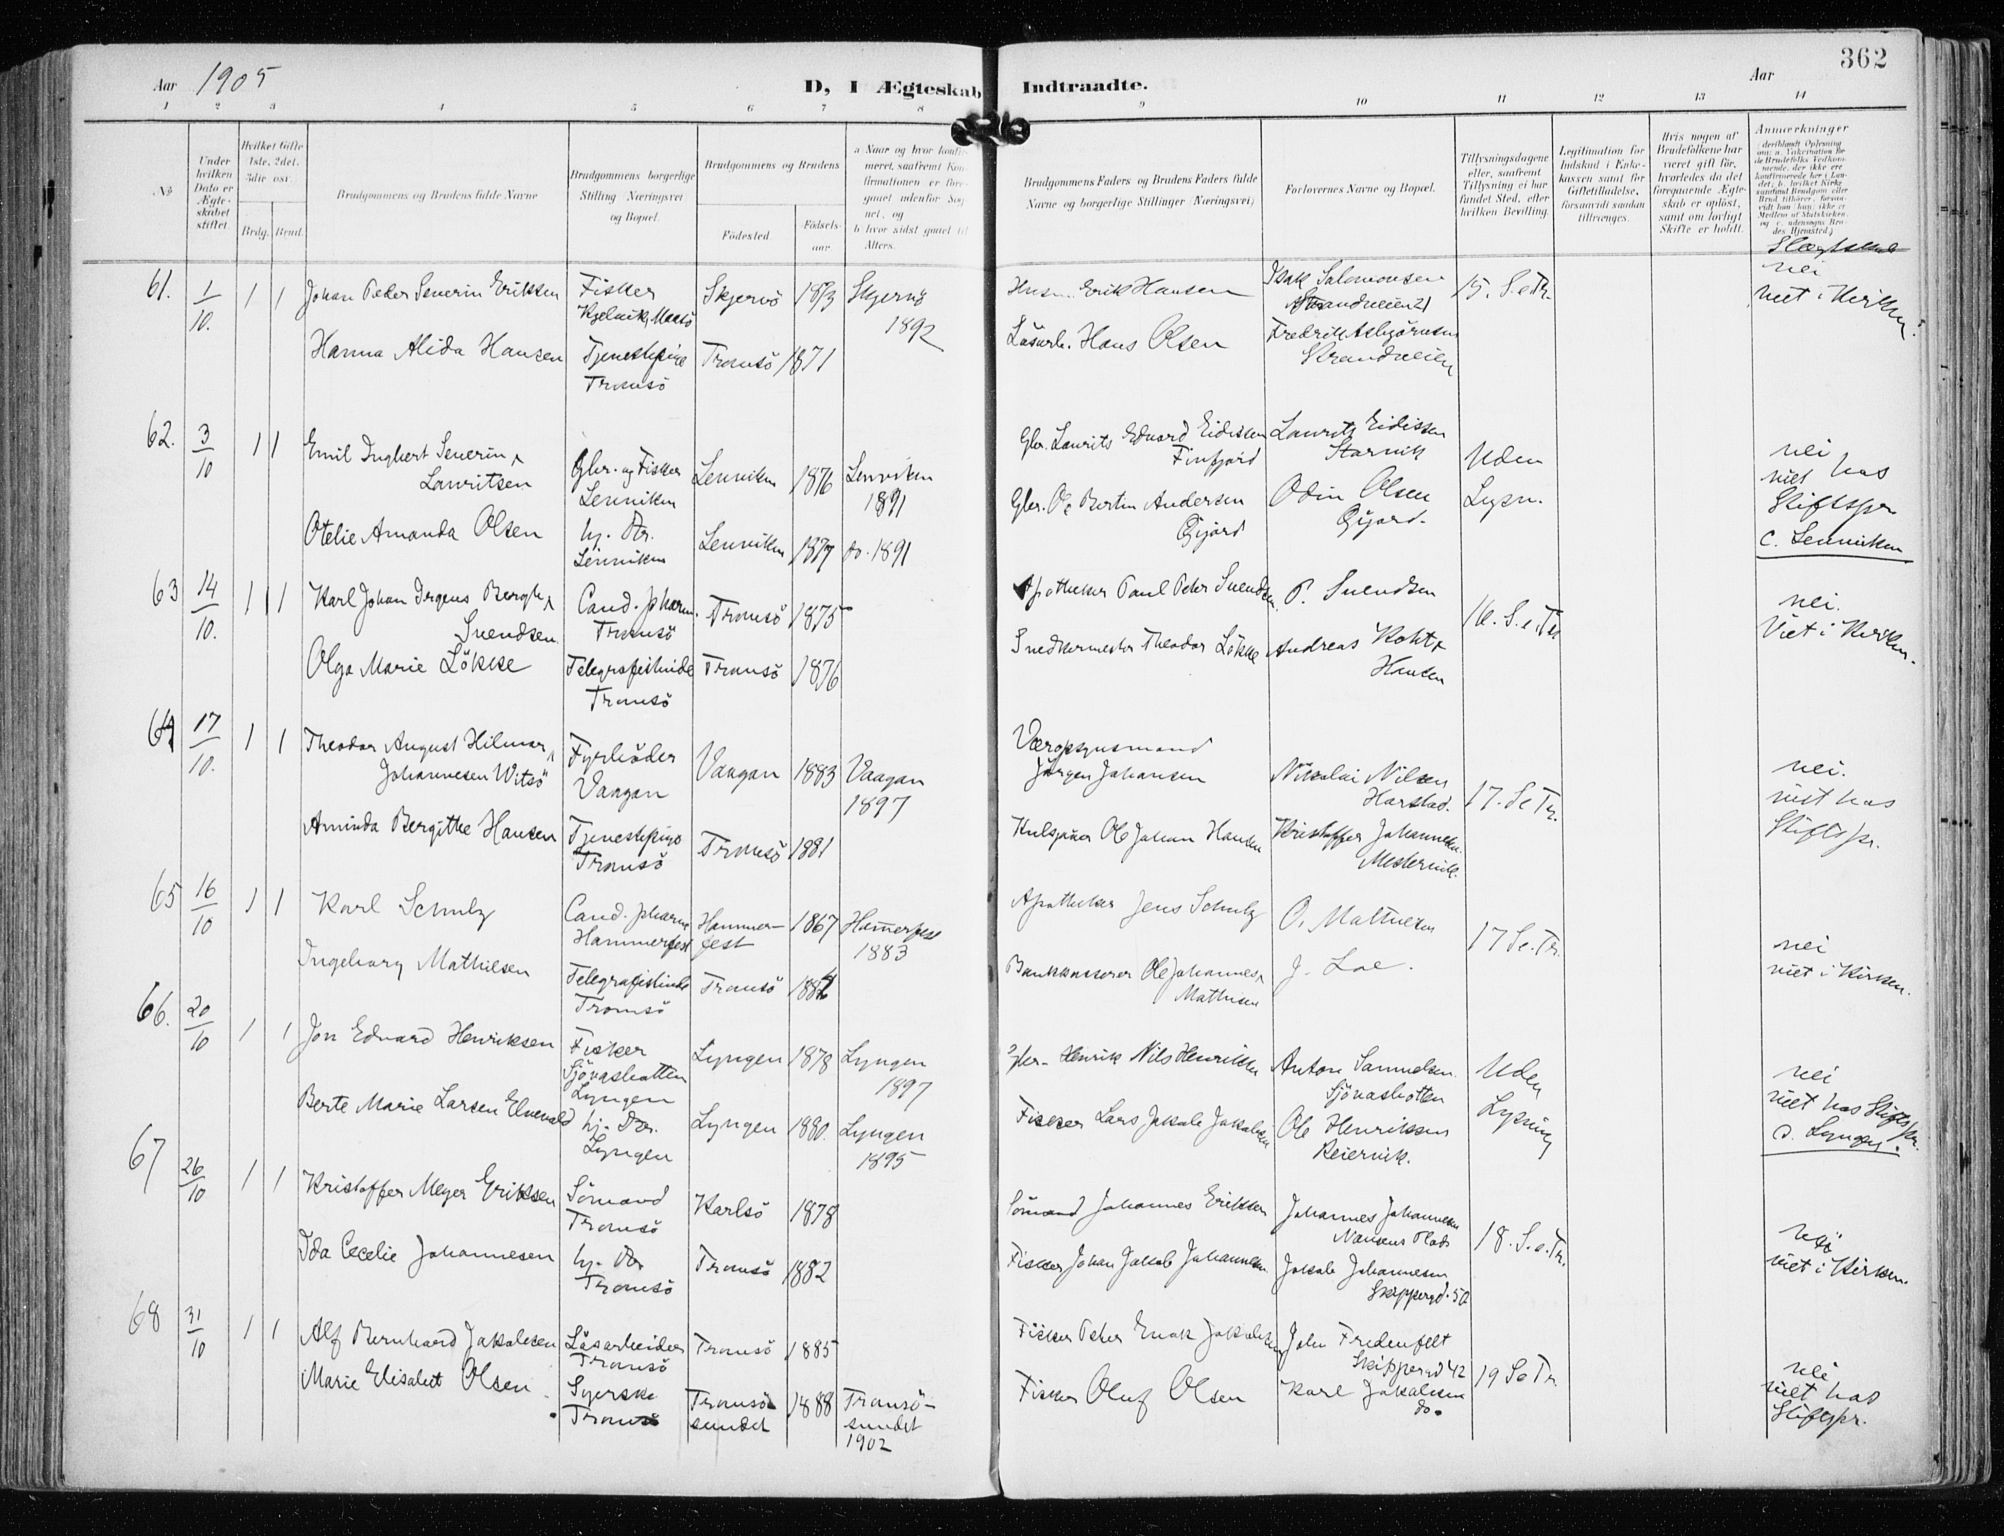 362
Aar 1905
D, I Ægteskab Indtraadte.
Aar
1 2 3 4 5 6 7 8 9 10 11 12 13 14
No
Under hvilken Dato er Ægteskabet stiftet.
Hvilket Gifte 1ste, 2det, 3die osv.
Brdg. Brud.
Brudgommens og Brudens fulde Navne
Brudgommens borgerlige Stilling Næringsvei og Bopæl.
Brudgommens og Brudens
Fødested.
Fødselsaar.
a Naar og hvor konfirmeret, saafremt Konfirmationen er foregaaet udenfor Sognet, og
b hvor sidst gaaet til Alters.
Brudgommens Faders og Brudens Faders fulde Navne og borgerlige Stillinger Næringsvei;
Forlovernes Navne og Bopæl.
Tillysningsdagene eller, saafremt Tillysning ei har fundet Sted, efter hvilken Bevilling.
Legitimation for Indskud i Enkekassen samt for Giftetilladelse, forsaavidt saadan tiltrænges.
Hvis nogen af Brudefolkene har været gift før, hvorledes da det foregaaende Ægteskab er opløst, samt om lovligt Skifte er holdt.
Anmærkninger
61. 1/10. 1 1 Johan Peder Severin Eriksen Fisker Skjervö 1873 Skjervö 1892
Husm. Erik Hansen Isak Salomonsen Strandveien 21 15. S.e.Tr. nei viet i Kirken.
Hanna Alida Hansen Tjenestepige Tromsö Tromsö 1871
Lösarb. Hans Olsen Fredrik Asbjörnsen Strandveien
62. 3/10 1 1 Emil Ingbert Severin Lauritsen Gbr. og Fisker Lenviken Lenviken 1876 Lenviken 1891
Gbr. Laurits Edvard Eidissen Finfjord Laurits Eidissen Uden Lysn. nei viet hos Stiftspr.
c. Lenviken
Otelie Amanda Olsen hj. Dr. Lenviken Lenviken 1877 do. 1891
Gbr. Ole Bertin Andersen Odin Olsen
63 14/10. 1 1 Karl Johan Irgens Bergh Svendsen Cand. pharm. Tromsö Tromsö 1875
Apotheker Paul Peter Svendsen P. Svendsen 16. S.e.Tr. nei. Viet i Kirken.
Olga Marie Lökke Telegrafistinde Tromsö Tromsö 1876
Snedkermester Theodor Lökke Andreas Hansen
64 17/10. 1 1 Theodor August Hilmar Johannesen Witsö Fyrböder Vaagan Vaagan 1883 Vaagan 1897
Væropsynsmand Jörgen Johansen Nikolai Nilsen Harstad. 17. S.e.Tr. nei. viet hos Stiftspr.
Aminda Bergithe Hansen Tjenestepige Tromsö Tromsö 1881
Ole Johan Hansen Kristoffer Johannesen
65 16/10 1 1 Karl Schulz Cand. pharm Hammerfest Hammerfest 1867 Hammerfest 1883
Apotheker Jens Schulz O. Mathiesen 17 S.e.Tr. nei viet i Kirken.
Ingeborg Mathiesen Telegrafistinde Tromsö Tromsö
Bankkasserer Ole Johannes Mathisen J. Loe.
66. 20/10 1 1 Jon Edvard Henriksen Fisker Sjövasbotten Lyngen Lyngen 1878 Lyngen 1897
Gbr. Henrik Nils Henriksen Anton Samuelsen. Sjövasbotten Uden Lysning nei viet hos Stiftspr.
c. Lyngen.
Berte Marie Larsen Elvevold hj. Dr. Lyngen Lyngen 1880. Lyngen 1895
Fisker Lars Jakob Jakobsen Ole Henriksen Reiervik.
67 26/10 1 1 Kristoffer Meyer Eriksen Sömand Tromsö Karlsö 1878
Sömand Johannes Eriksen Johannes Johannesen Nansens Plads 18. S.e.Tr. viet i Kirken.
Ida Cecelie Johannesen hj. Dr Tromsö Tromsö 1882
Fisker Johan Jakob Johannesen. Jakob Johannesen Skippergd. 50
68 31/10 1 1 Alf Bernhard Jakobsen Lösarbeider Tromsö Tromsö 1885
Fisker Peter Enok Jakobsen John Fredenfelt Skippergd 42 19 S.e.Tr. nei viet hos Stiftspr.
Marie Elisabet Olsen. Syerske Tromsö Tromsösundet 1888 Tromsösundet 1902
Fisker Oluf Olsen Karl Jakobsen do.